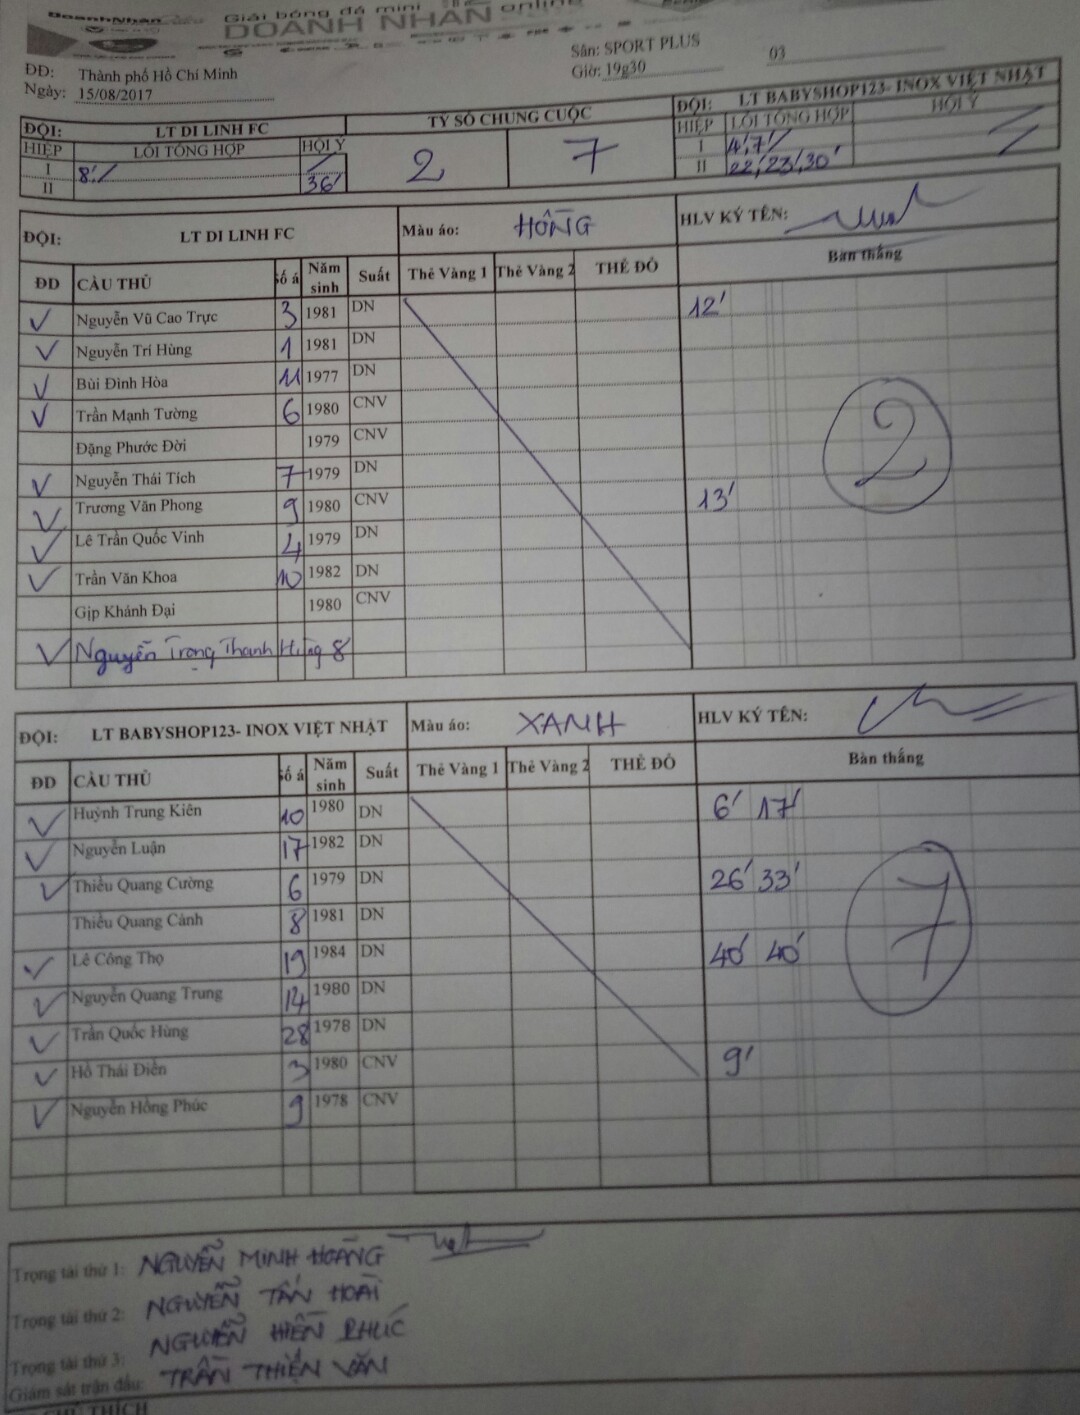 DoanhNhân
Giải bóng đá mini
DOANH NHÂN online
ĐĐ: Thành phố Hồ Chí Minh
Ngày: 15/08/2017
Sân: SPORT PLUS
Giờ: 19g30
03
ĐỘI: LT DI LINH FC
TỶ SỐ CHUNG CUỘC
ĐỘI: LT BABYSHOP123- INOX VIỆT NHẬT
HIỆP LỖI TỔNG HỢP HỘI Ý
2 7
HIỆP LỖI TỔNG HỢP HỘI Ý
I 8'
II 36'
I 4', 7'
II 22', 23', 30'
ĐỘI: LT DI LINH FC Màu áo: HỒNG HLV KÝ TÊN:
ĐD CẦU THỦ Số á Năm sinh Suất Thẻ Vàng 1 Thẻ Vàng 2 THẺ ĐỎ Bàn thắng
Nguyễn Vũ Cao Trực 3 1981 DN 12'
Nguyễn Trí Hùng 1 1981 DN
Bùi Đình Hòa 11 1977 DN
Trần Mạnh Tường 6 1980 CNV
Đặng Phước Đời 1979 CNV
Nguyễn Thái Tích 7 1979 DN
Trương Văn Phong 9 1980 CNV 13'
Lê Trần Quốc Vinh 4 1979 DN
Trần Văn Khoa 10 1982 DN
Gịp Khánh Đại 1980 CNV
Nguyễn Trọng Thanh Hùng 8
2
ĐỘI: LT BABYSHOP123- INOX VIỆT NHẬT Màu áo: XANH HLV KÝ TÊN:
ĐD CẦU THỦ Số á Năm sinh Suất Thẻ Vàng 1 Thẻ Vàng 2 THẺ ĐỎ Bàn thắng
Huỳnh Trung Kiên 10 1980 DN 6' 17'
Nguyễn Luận 17 1982 DN
Thiều Quang Cường 6 1979 DN 26' 33'
Thiều Quang Cảnh 8 1981 DN
Lê Công Thọ 19 1984 DN 40' 40'
Nguyễn Quang Trung 14 1980 DN
Trần Quốc Hùng 28 1978 DN
Hồ Thái Điền 3 1980 CNV 9'
Nguyễn Hồng Phúc 9 1978 CNV
7
Trọng tài thứ 1: NGUYỄN MINH HOÀNG
Trọng tài thứ 2: NGUYỄN TẤN HOÀI
Trọng tài thứ 3: NGUYỄN HIỀN PHÚC
Giám sát trận đấu: TRẦN THIỆN VĂN
CHÚ THÍCH